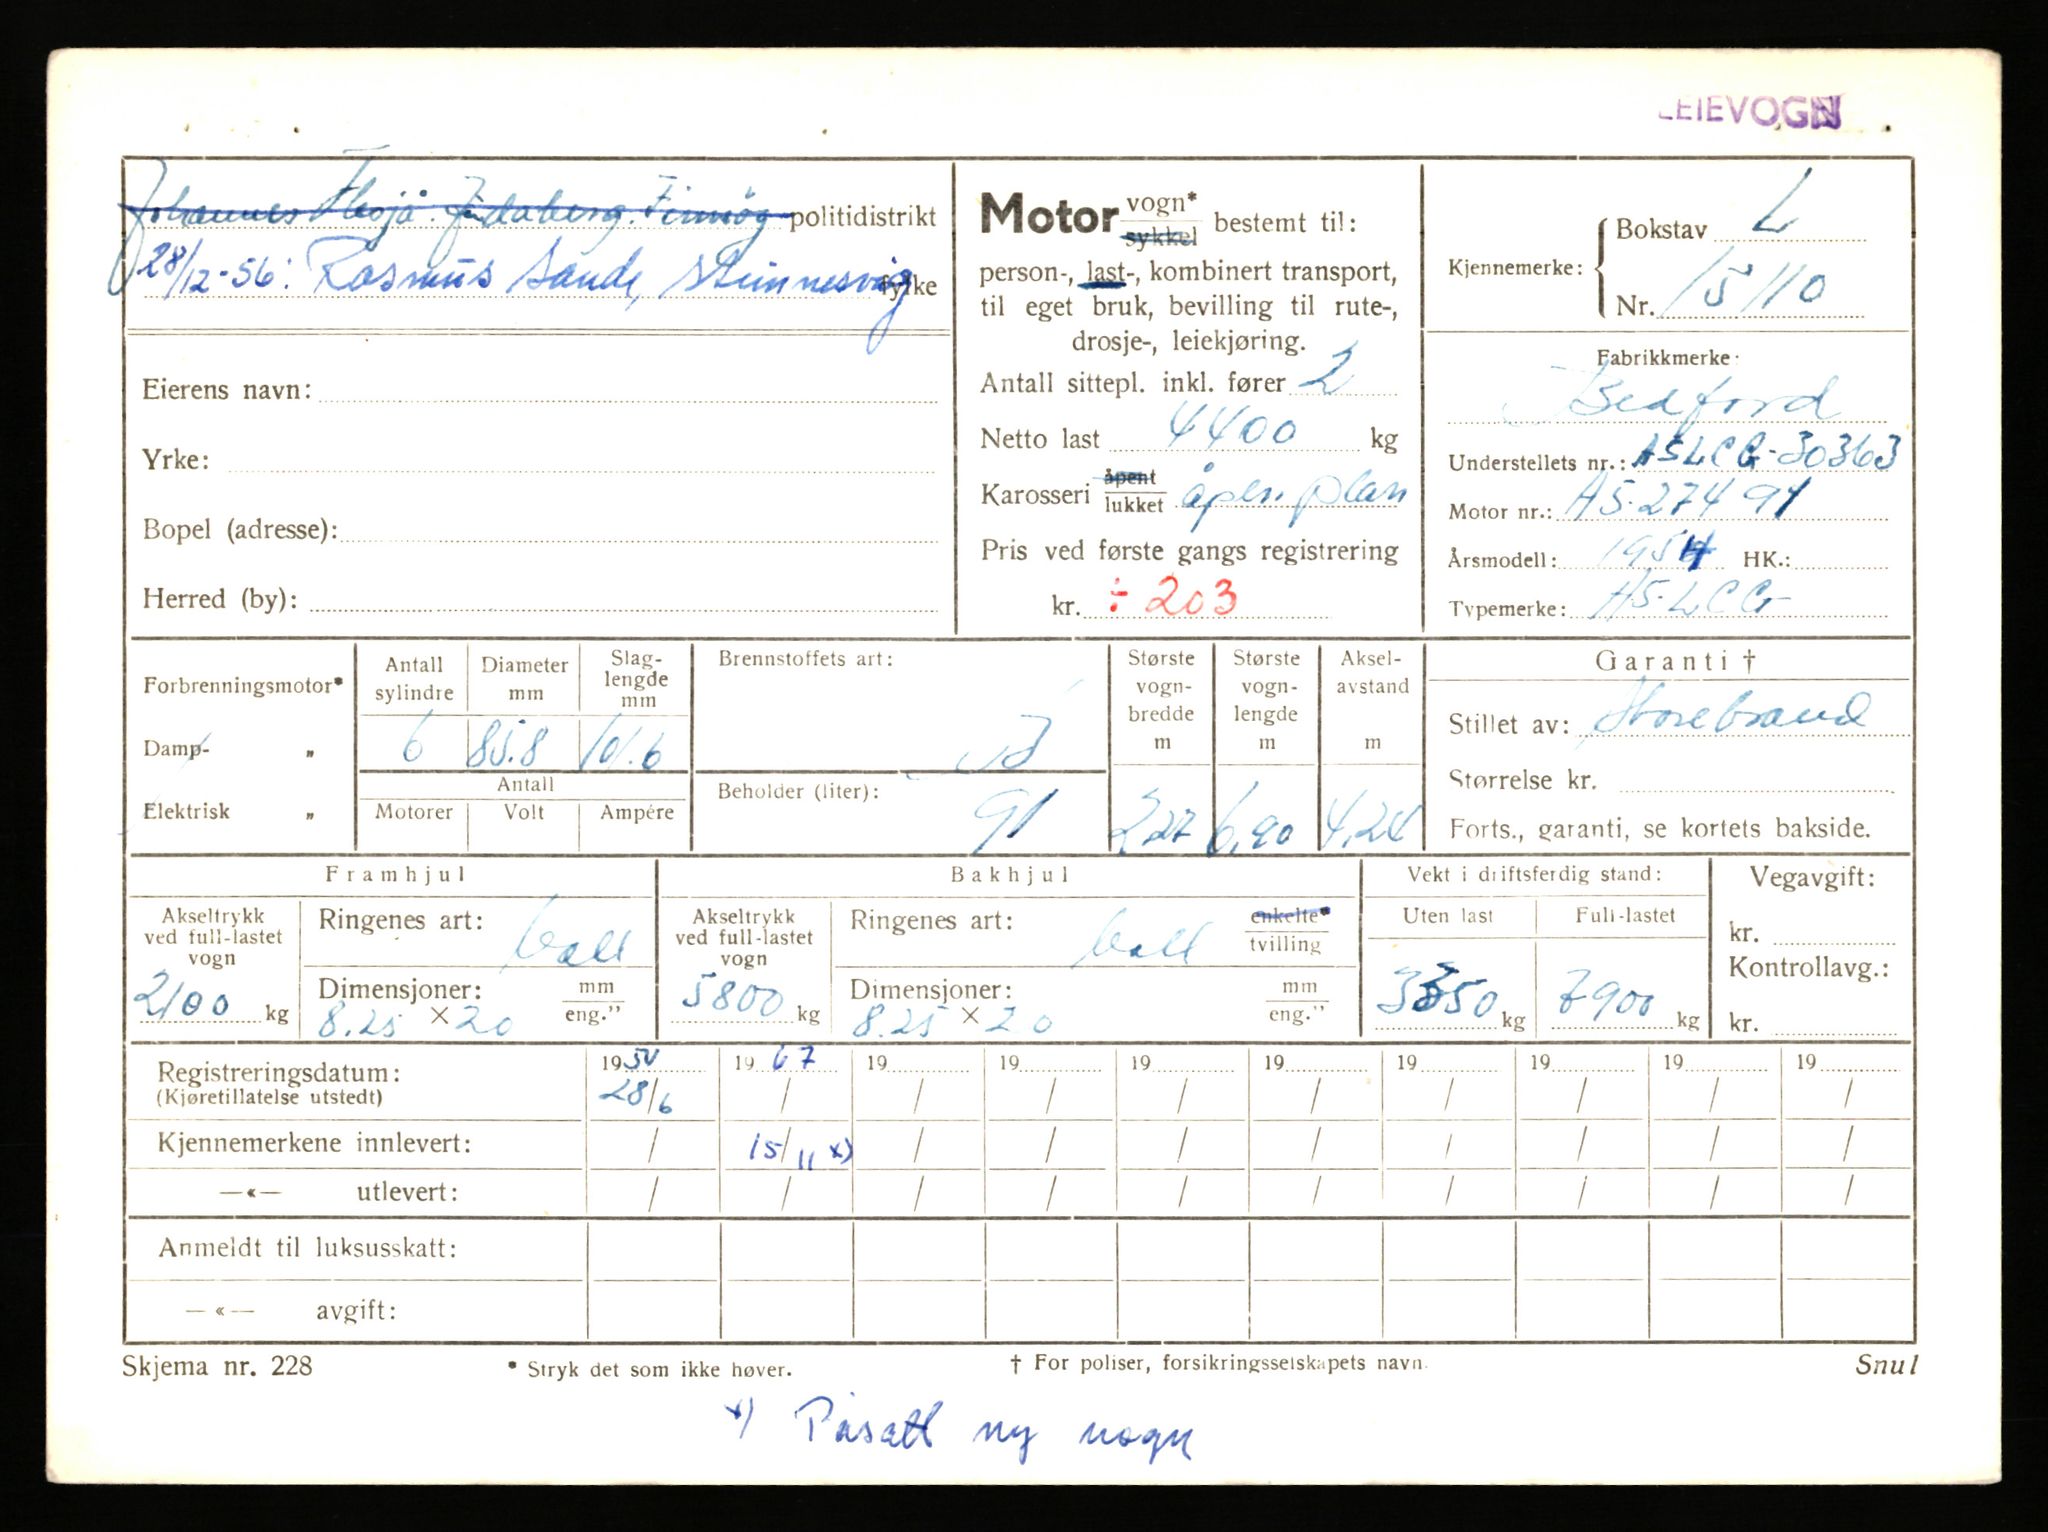 LEIEVOGN
Johannes politidistrikt
28/12-56: Rasmus Sande, fylke
Eierens navn:
Yrke:
Bopel (adresse):
Herred (by):
Motor vogn* sykkel bestemt til:
person-, last-, kombinert transport,
til eget bruk, bevilling til rute-,
drosje-, leiekjøring.
Antall sittepl. inkl. fører 2
Netto last 4400 kg
Karosseri åpent lukket åpen plan
Pris ved første gangs registrering
kr. ÷ 203
Kjennemerke: Bokstav L
Nr. 15110
Fabrikkmerke:
Bedford
Understellets nr.: A5LCG-30363
Motor nr.: A5-27491
Årsmodell: 1954 HK.:
Typemerke: A5LCG
Forbrenningsmotor*
Damp- „
Elektrisk „
Antall sylindre Diameter mm Slag-lengde mm
6 85.8 101.6
Antall
Motorer Volt Ampére
Brennstoffets art:
Beholder (liter):
91
Største vogn-bredde m Største vogn-lengde m Aksel-avstand m
2,27 6,90 4,24
Garanti †
Stillet av: Storebrand
Størrelse kr.
Forts., garanti, se kortets bakside.
Framhjul
Akseltrykk ved full-lastet vogn
2100 kg
Ringenes art: ball
Dimensjoner: mm eng."
8.25 × 20
Bakhjul
Akseltrykk ved full-lastet vogn
5800 kg
Ringenes art: ball enkelte* tvilling
Dimensjoner: mm eng."
8.25 × 20
Vekt i driftsferdig stand:
Uten last Full-lastet
3350 kg 7900 kg
Vegavgift:
kr.
Kontrollavg.:
kr.
Registreringsdatum: 1954 1967 19 19 19 19 19 19 19 19
(Kjøretillatelse utstedt) 28/6 / / / / / / / / /
Kjennemerkene innlevert: / 15/11 x) / / / / / / / /
—«— utlevert: / / / / / / / / / /
Anmeldt til luksusskatt:
—«— avgift:
Skjema nr. 228 * Stryk det som ikke høver. † For poliser, forsikringsselskapets navn. Snul
x) Påsatt ny vogn